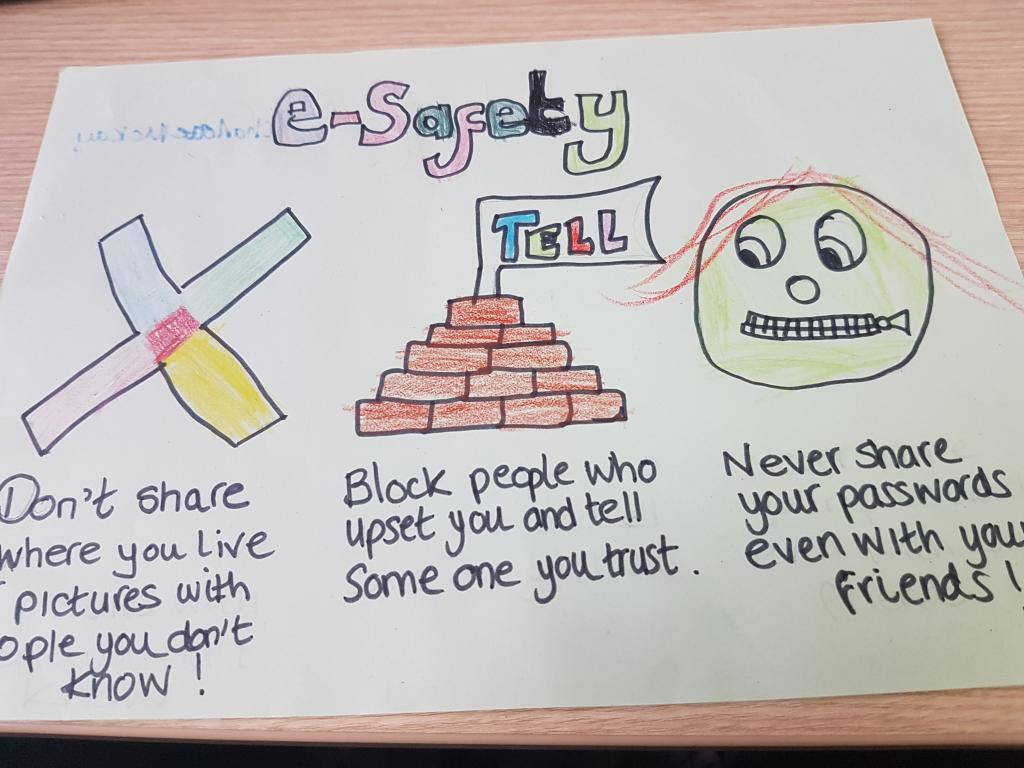 e-Safety
TELL
Don't share
where you live
pictures with
ople you don't
know!
Block people who
upset you and tell
Some one you trust.
Never share
your passwords
even with you
friends!